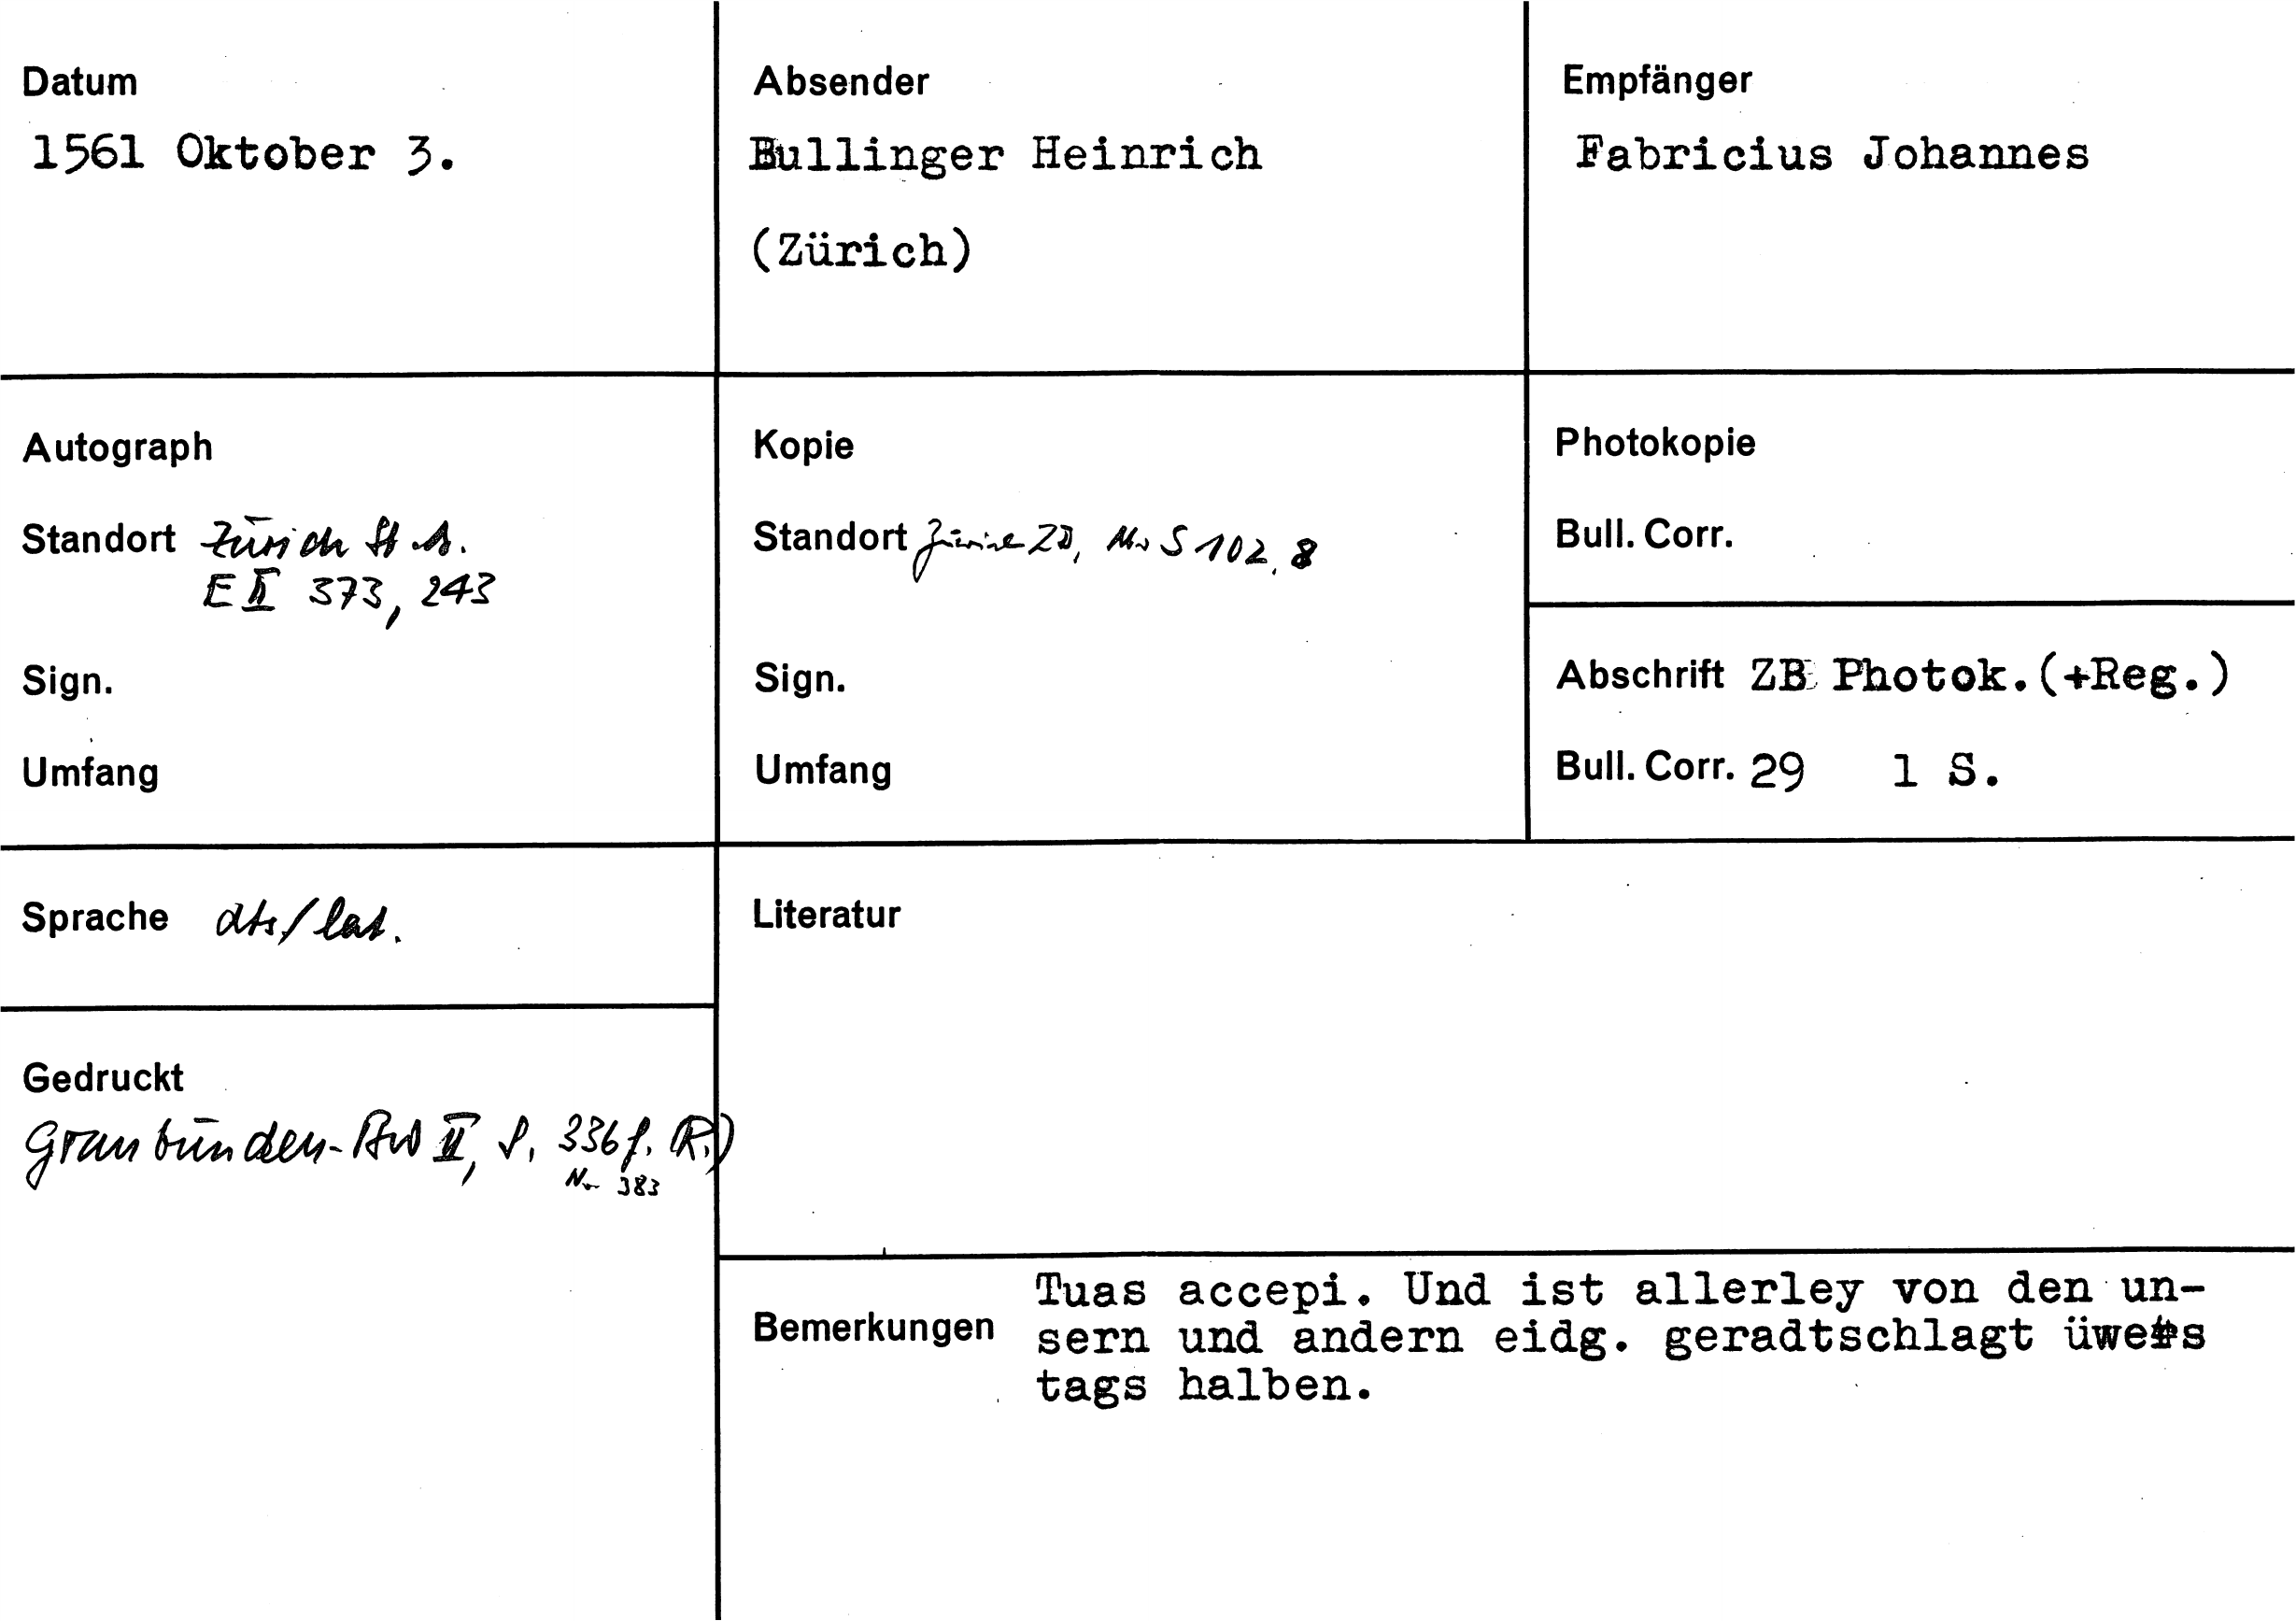 Datum
1561 Oktober 3.
Absender
Bullinger Heinrich
(Zürich)
Empfänger
Fabricius Johannes
Autograph
Standort Zürich St.A.
E II 373, 243
Sign.
Umfang
Kopie
Standort Zürich ZB, Ms S 102, 8
Sign.
Umfang
Photokopie
Bull. Corr.
Abschrift ZB Photok.(+Reg.)
Bull. Corr. 29 1 S.
Sprache dts/lat.
Literatur
Gedruckt
Graubünden-BW II, S. 336 f. (R.)
Nr 383
Bemerkungen
Tuas accepi. Und ist allerley von den un-
sern und andern eidg. geradtschlagt üwers
tags halben.